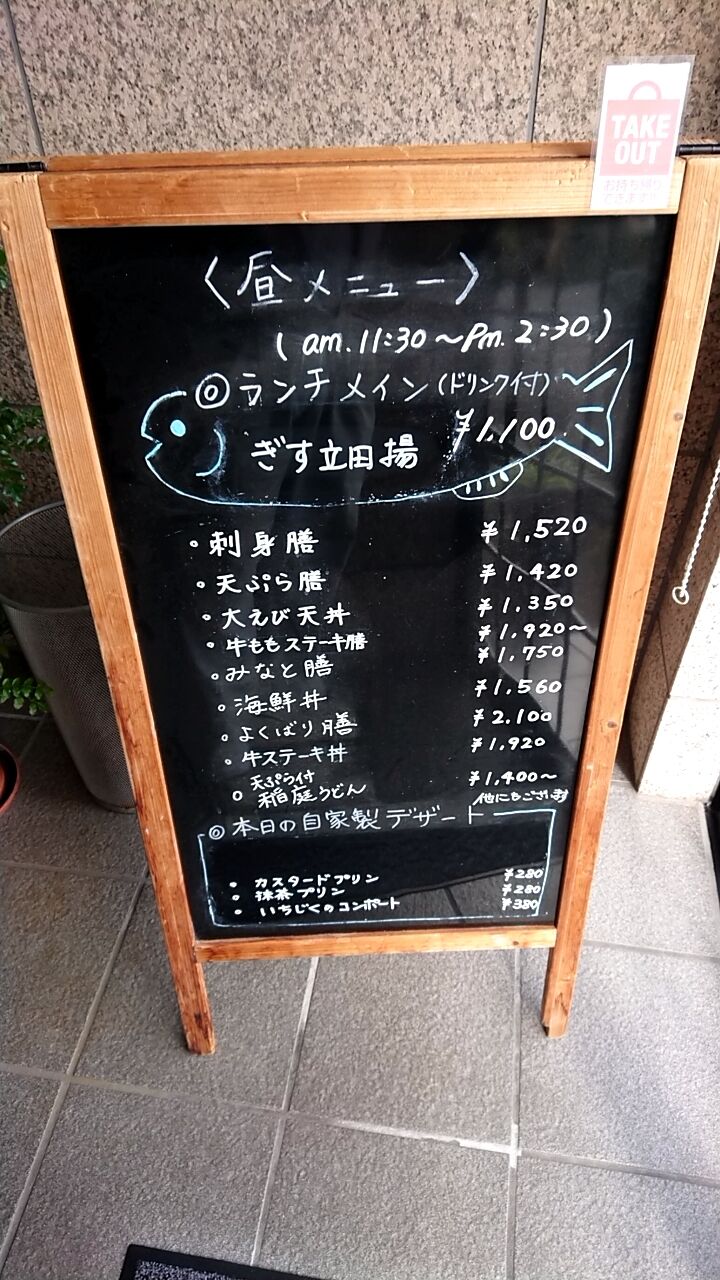 TAKE
OUT
お持ち帰り
できます!!
〈昼メニュー〉
(am.11:30〜Pm.2:30)
◎ランチメイン(ドリンク付)
¥1,100
ぎす立田揚
・刺身膳 ¥1,520
・天ぷら膳 ¥1,420
・大えび天丼 ¥1,350
・牛ももステーキ膳 ¥1,920〜
・みなと膳 ¥1,750
・海鮮丼 ¥1,560
・よくばり膳 ¥2,100
・牛ステーキ丼 ¥1,920
天ぷら付
○稲庭うどん ¥1,400〜
他にもございます
◎本日の自家製デザート
・カスタードプリン ¥280
・抹茶プリン ¥280
・いちじくのコンポート ¥380